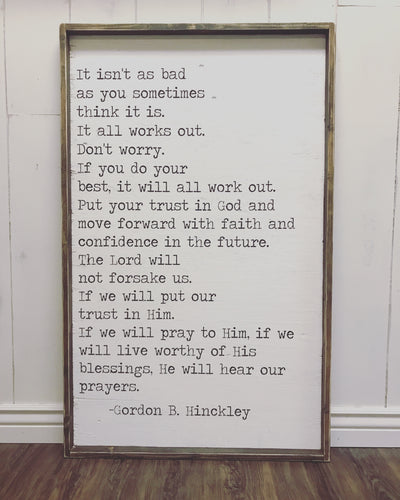 It isn't as bad
as you sometimes
think it is.
It all works out.
Don't worry.
If you do your
best, it will all work out.
Put your trust in God and
move forward with faith and
confidence in the future.
The Lord will
not forsake us.
If we will put our
trust in Him.
If we will pray to Him, if we
will live worthy of His
blessings, He will hear our
prayers.
-Gordon B. Hinckley